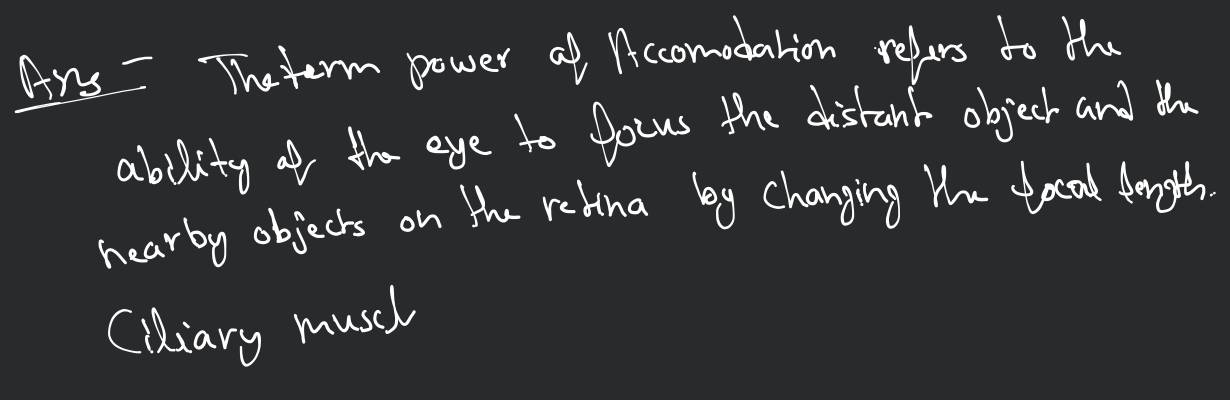 Ans - The term power of Accomodation refers to the
ability of the eye to focus the distant object and the
nearby objects on the retina by changing the focal length.
Ciliary muscl